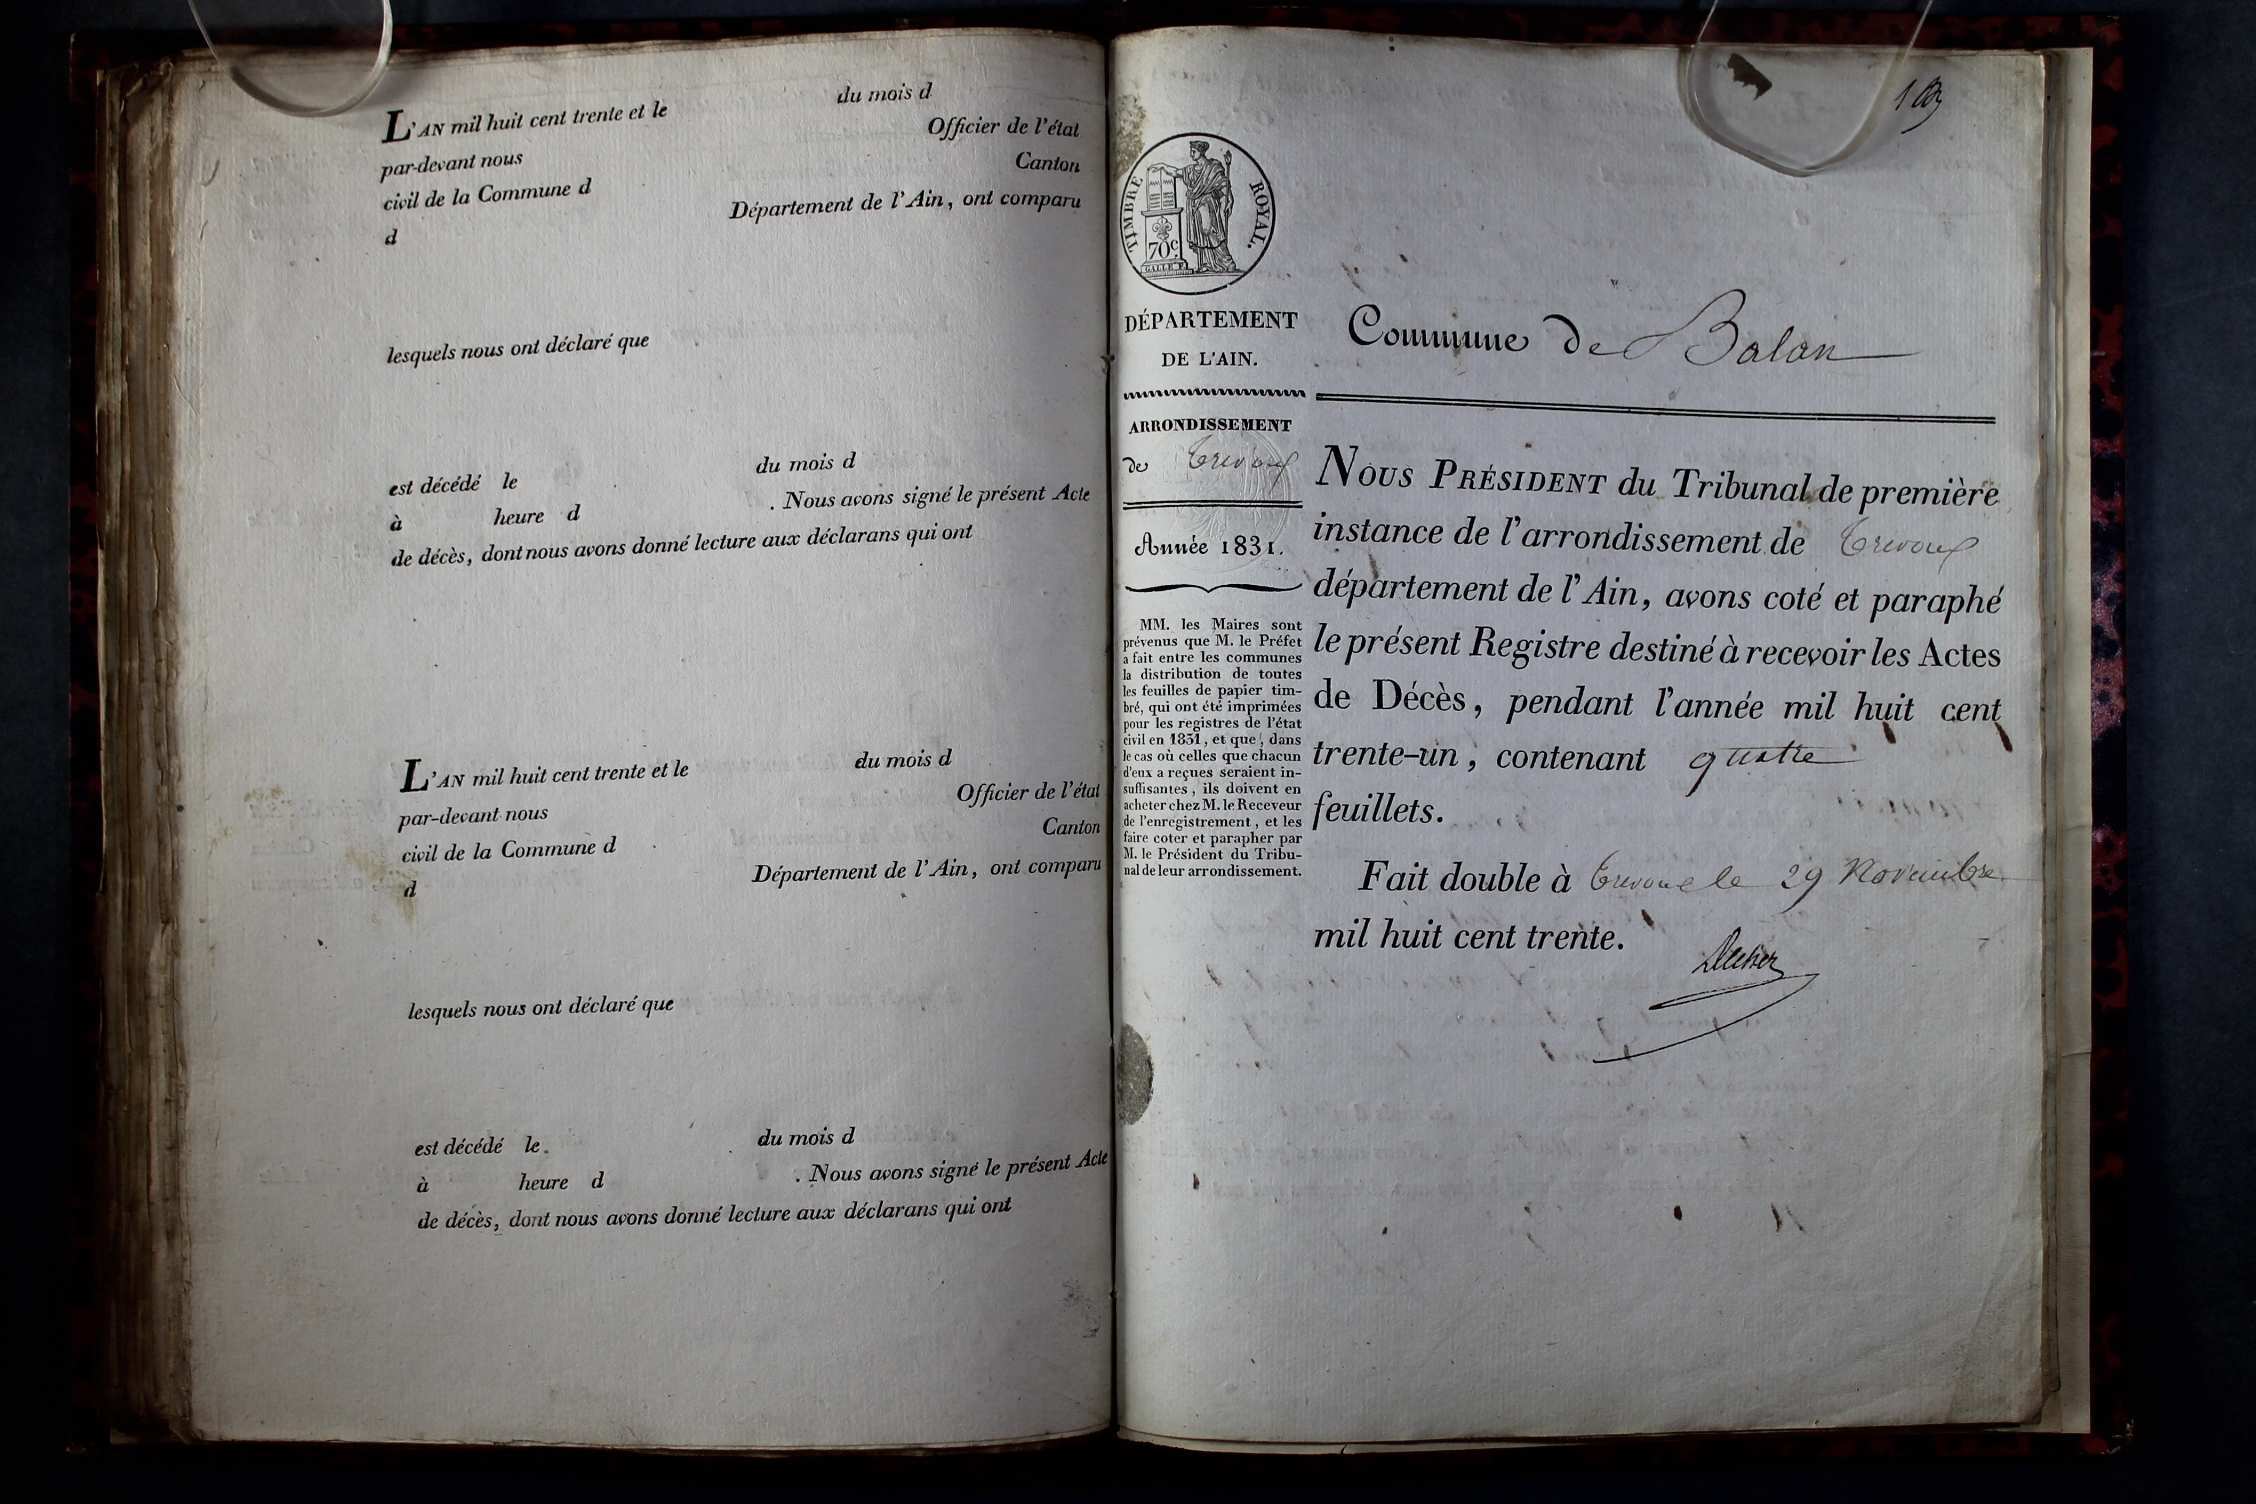 L'AN mil huit cent trente et le du mois d
par-devant nous Officier de l'état
civil de la Commune d Canton
d Département de l'Ain, ont comparu
lesquels nous ont déclaré que
est décédé le du mois d
à heure d . Nous avons signé le présent Acte
de décès, dont nous avons donné lecture aux déclarans qui ont
L'AN mil huit cent trente et le du mois d
par-devant nous Officier de l'état
civil de la Commune d Canton
d Département de l'Ain, ont comparu
lesquels nous ont déclaré que
est décédé le. du mois d
à heure d . Nous avons signé le présent Acte
de décès, dont nous avons donné lecture aux déclarans qui ont
1
TIMBRE ROYAL.
70c.
GALLE F.
DÉPARTEMENT
DE L'AIN.
ARRONDISSEMENT
de Trevoux
Année 1831.
MM. les Maires sont
prévenus que M. le Préfet
a fait entre les communes
la distribution de toutes
les feuilles de papier tim-
bré, qui ont été imprimées
pour les registres de l'état
civil en 1831, et que, dans
le cas où celles que chacun
d'eux a reçues seraient in-
suffisantes, ils doivent en
acheter chez M. le Receveur
de l'enregistrement, et les
faire coter et parapher par
M. le Président du Tribu-
nal de leur arrondissement.
Commune de Balan
NOUS PRÉSIDENT du Tribunal de première
instance de l'arrondissement de Trevoux
département de l'Ain, avons coté et paraphé
le présent Registre destiné à recevoir les Actes
de Décès, pendant l'année mil huit cent
trente-un, contenant quatre
feuillets.
Fait double à Trevoux le 29 Novembre
mil huit cent trente.